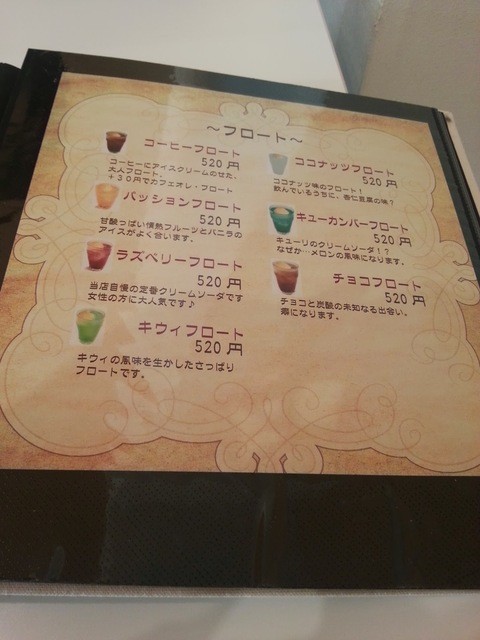 ～フロート～
コーヒーフロート
520円
コーヒーにアイスクリームのせた、
大人フロート、
+30円でカフェオレ・フロート
パッションフロート
520円
甘酸っぱい情熱フルーツとバニラの
アイスがよく合います。
ラズベリーフロート
520円
当店自慢の定番クリームソーダです
女性の方に大人気です♪
キウィフロート
520円
キウィの風味を生かしたさっぱり
フロートです。
ココナッツフロート
520円
ココナッツ味のフロート！
飲んでいるうちに、杏仁豆腐の味？
キューカンバーフロート
520円
キューリのクリームソーダ！？
なぜか…メロンの風味になります。
チョコフロート
520円
チョコと炭酸の未知なる出会い。
癖になります。